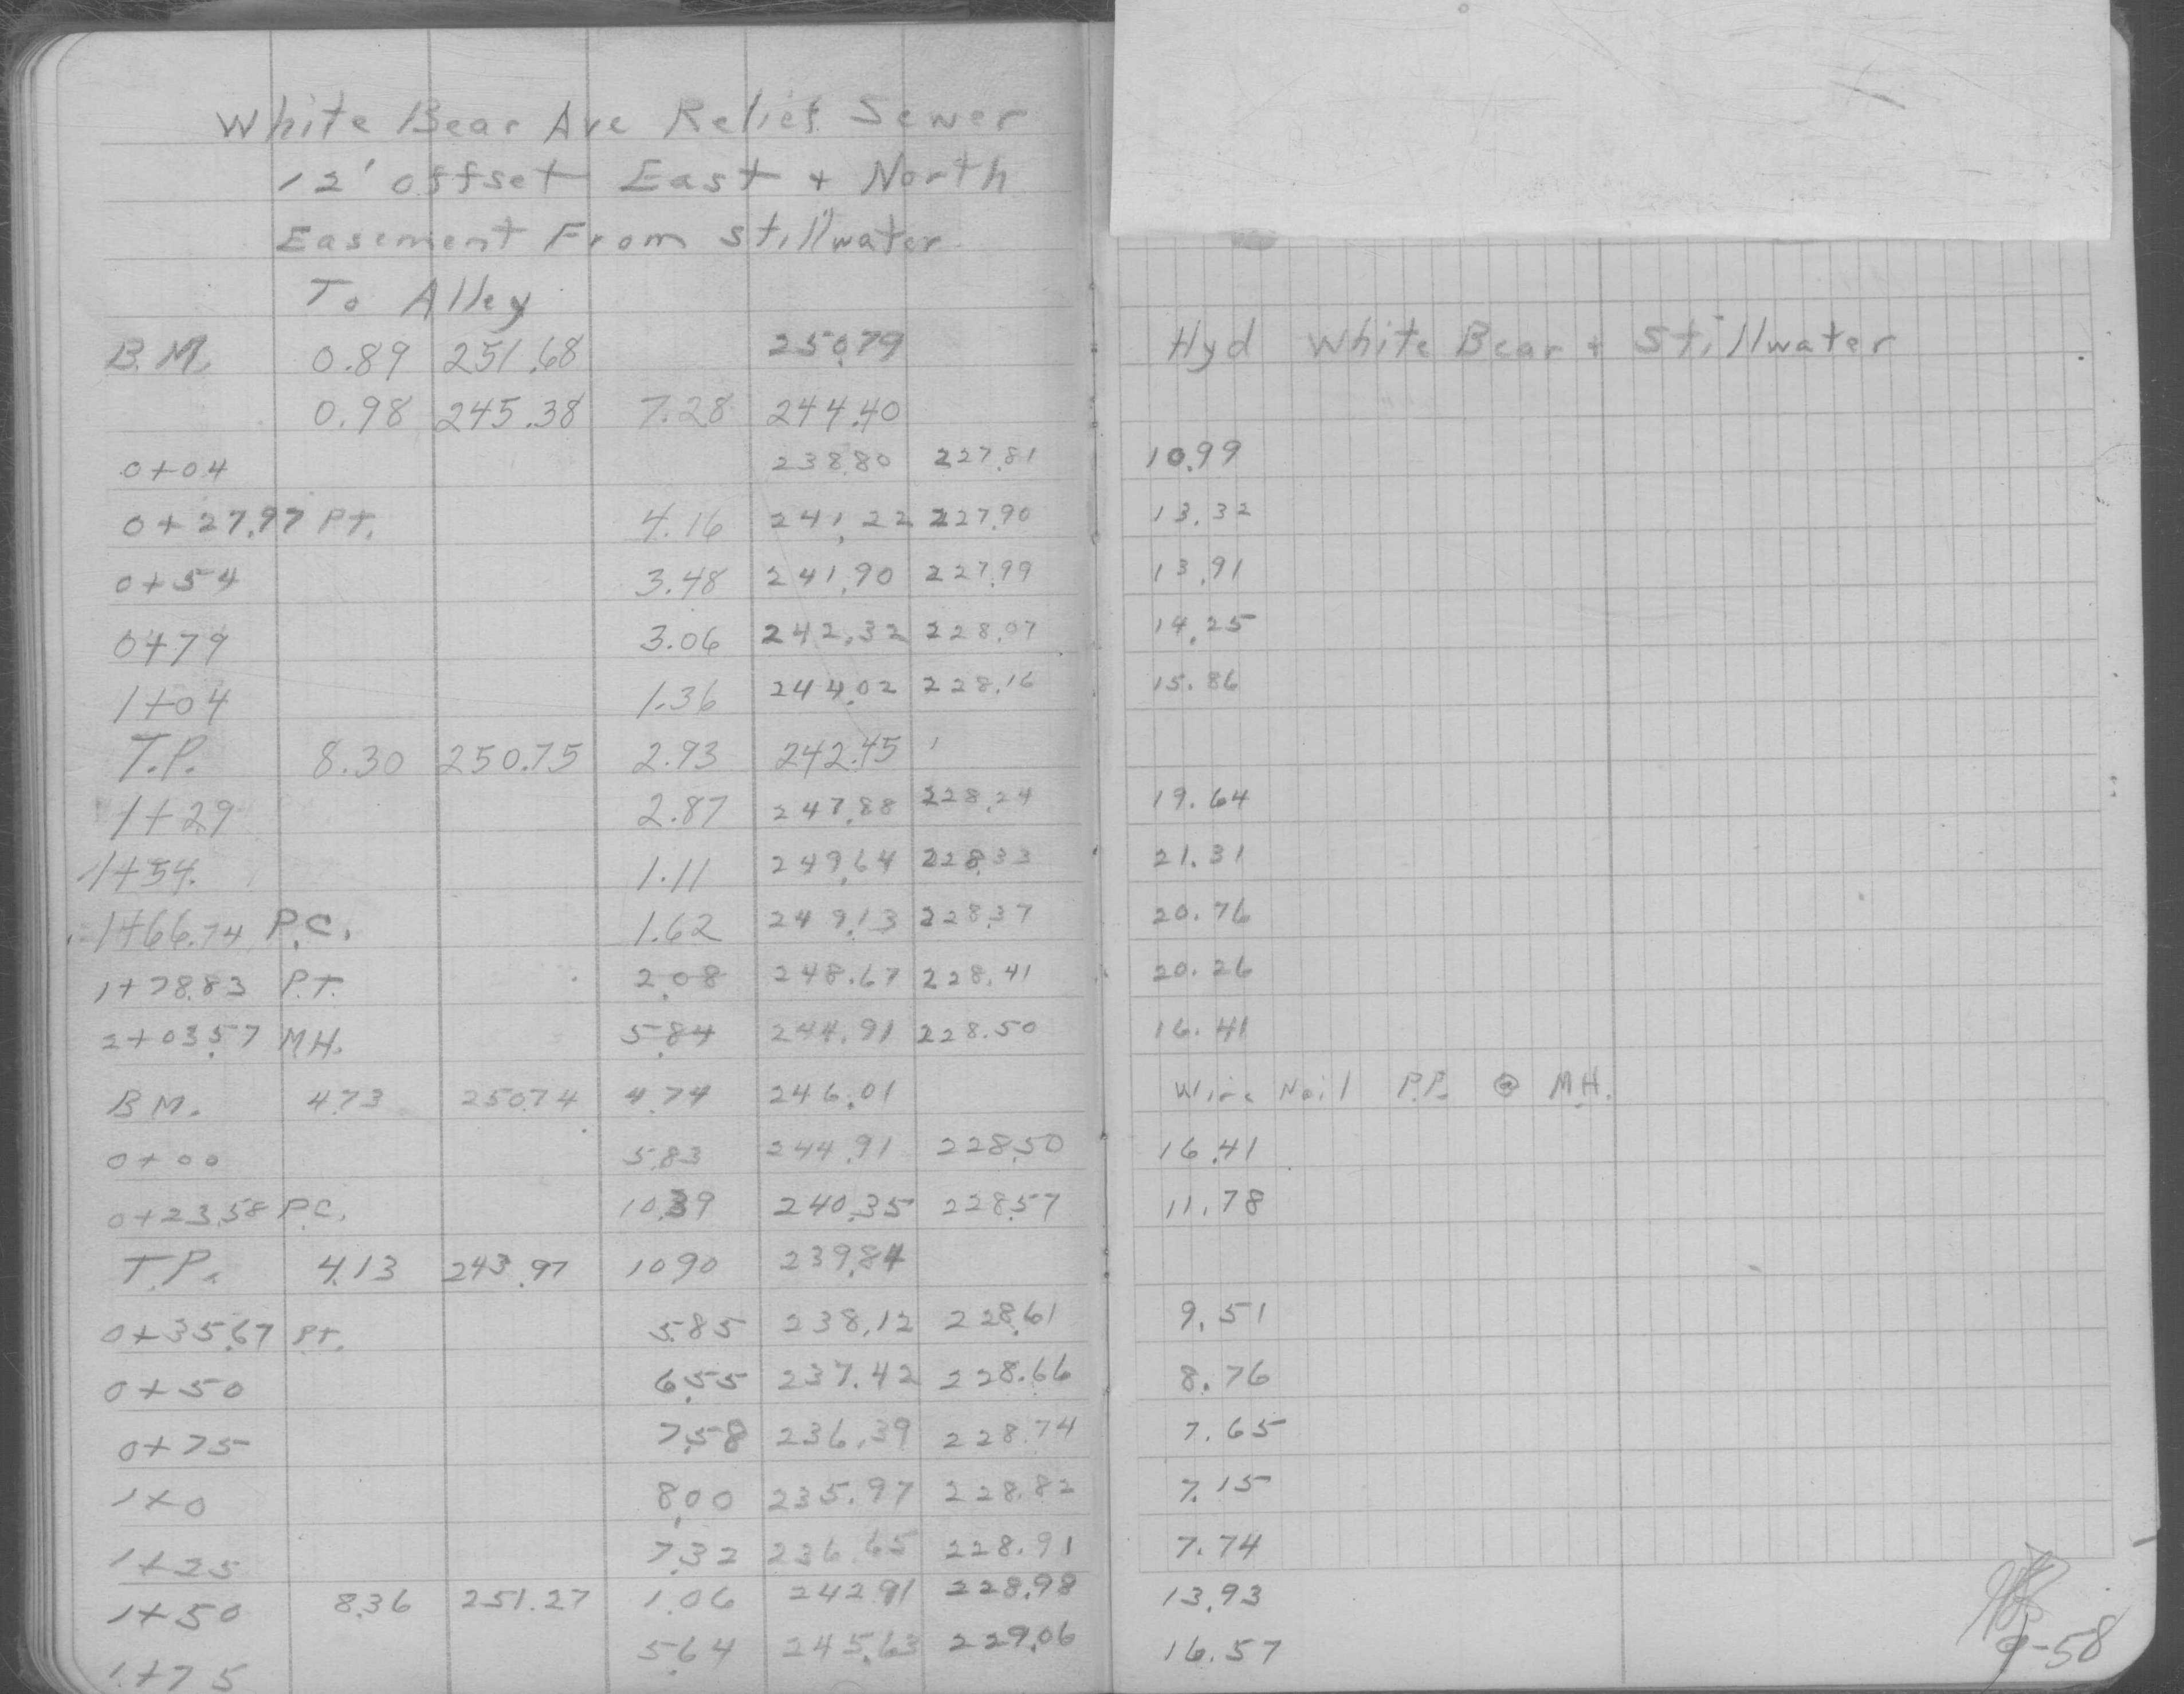 White Bear Ave Relief Sewer
12' offset East + North
Easement From Stillwater
To Alley
B.M. 0.89 251.68 250.79 Hyd White Bear + Stillwater
0.98 245.38 7.28 244.40
0+04 238.80 227.81 10.99
0+27.97 P.T. 4.16 241.22 227.90 13.32
0+54 3.48 241.90 227.99 13.91
0+79 3.06 242.32 228.07 14.25
1+04 1.36 244.02 228.16 15.86
T.P. 8.30 250.75 2.93 242.45
1+29 2.87 247.88 228.24 19.64
1+54 1.11 249.64 228.33 21.31
1+66.74 P.C. 1.62 249.13 228.37 20.76
1+78.83 P.T. 2.08 248.67 228.41 20.26
2+03.57 MH. 5.84 244.91 228.50 16.41
B.M. 4.73 250.74 4.74 246.01 Wire Nail P.P. @ M.H.
0+00 5.83 244.91 228.50 16.41
0+23.58 P.C. 10.39 240.35 228.57 11.78
T.P. 4.13 243.97 10.90 239.84
0+35.67 P.T. 5.85 238.12 228.61 9.51
0+50 6.55 237.42 228.66 8.76
0+75 7.58 236.39 228.74 7.65
1+0 8.00 235.97 228.82 7.15
1+25 7.32 236.65 228.91 7.74
1+50 8.36 251.27 1.06 242.91 228.98 13.93
1+75 5.64 245.63 229.06 16.57
9-58